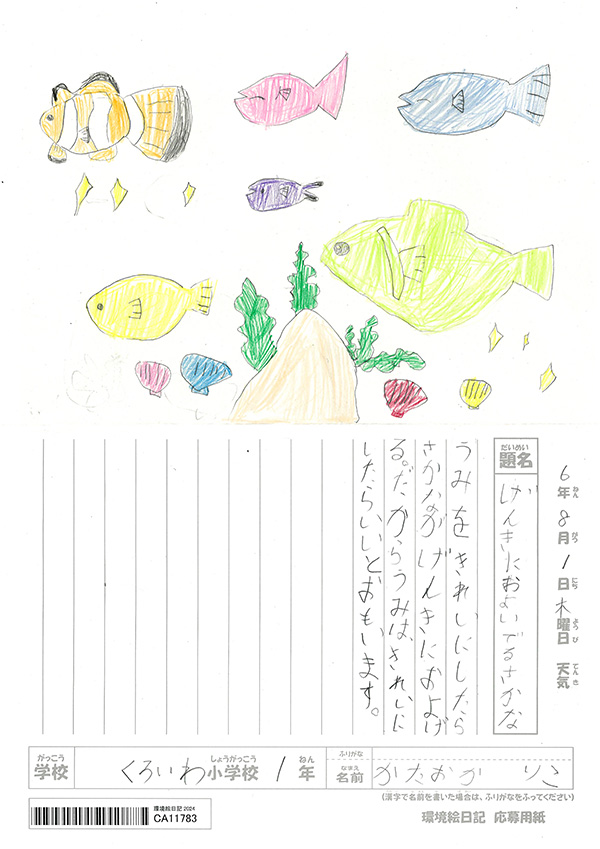 6年8月1日木曜日 天気
ねん がつ にち ようび てんき
だいめい
題名
げんきにおよいでるさかな
うみをきれいにしたら
さかながげんきにおよげ
る。だからうみは、きれいに
したらいいとおもいます。
がっこう しょうがっこう ねん
学校 くろいわ小学校 1年
ふりがな
なまえ
名前 かたおか
(漢字で名前を書いた場合は、ふりがなをふってください)
環境絵日記 2024
CA11783
環境絵日記 応募用紙